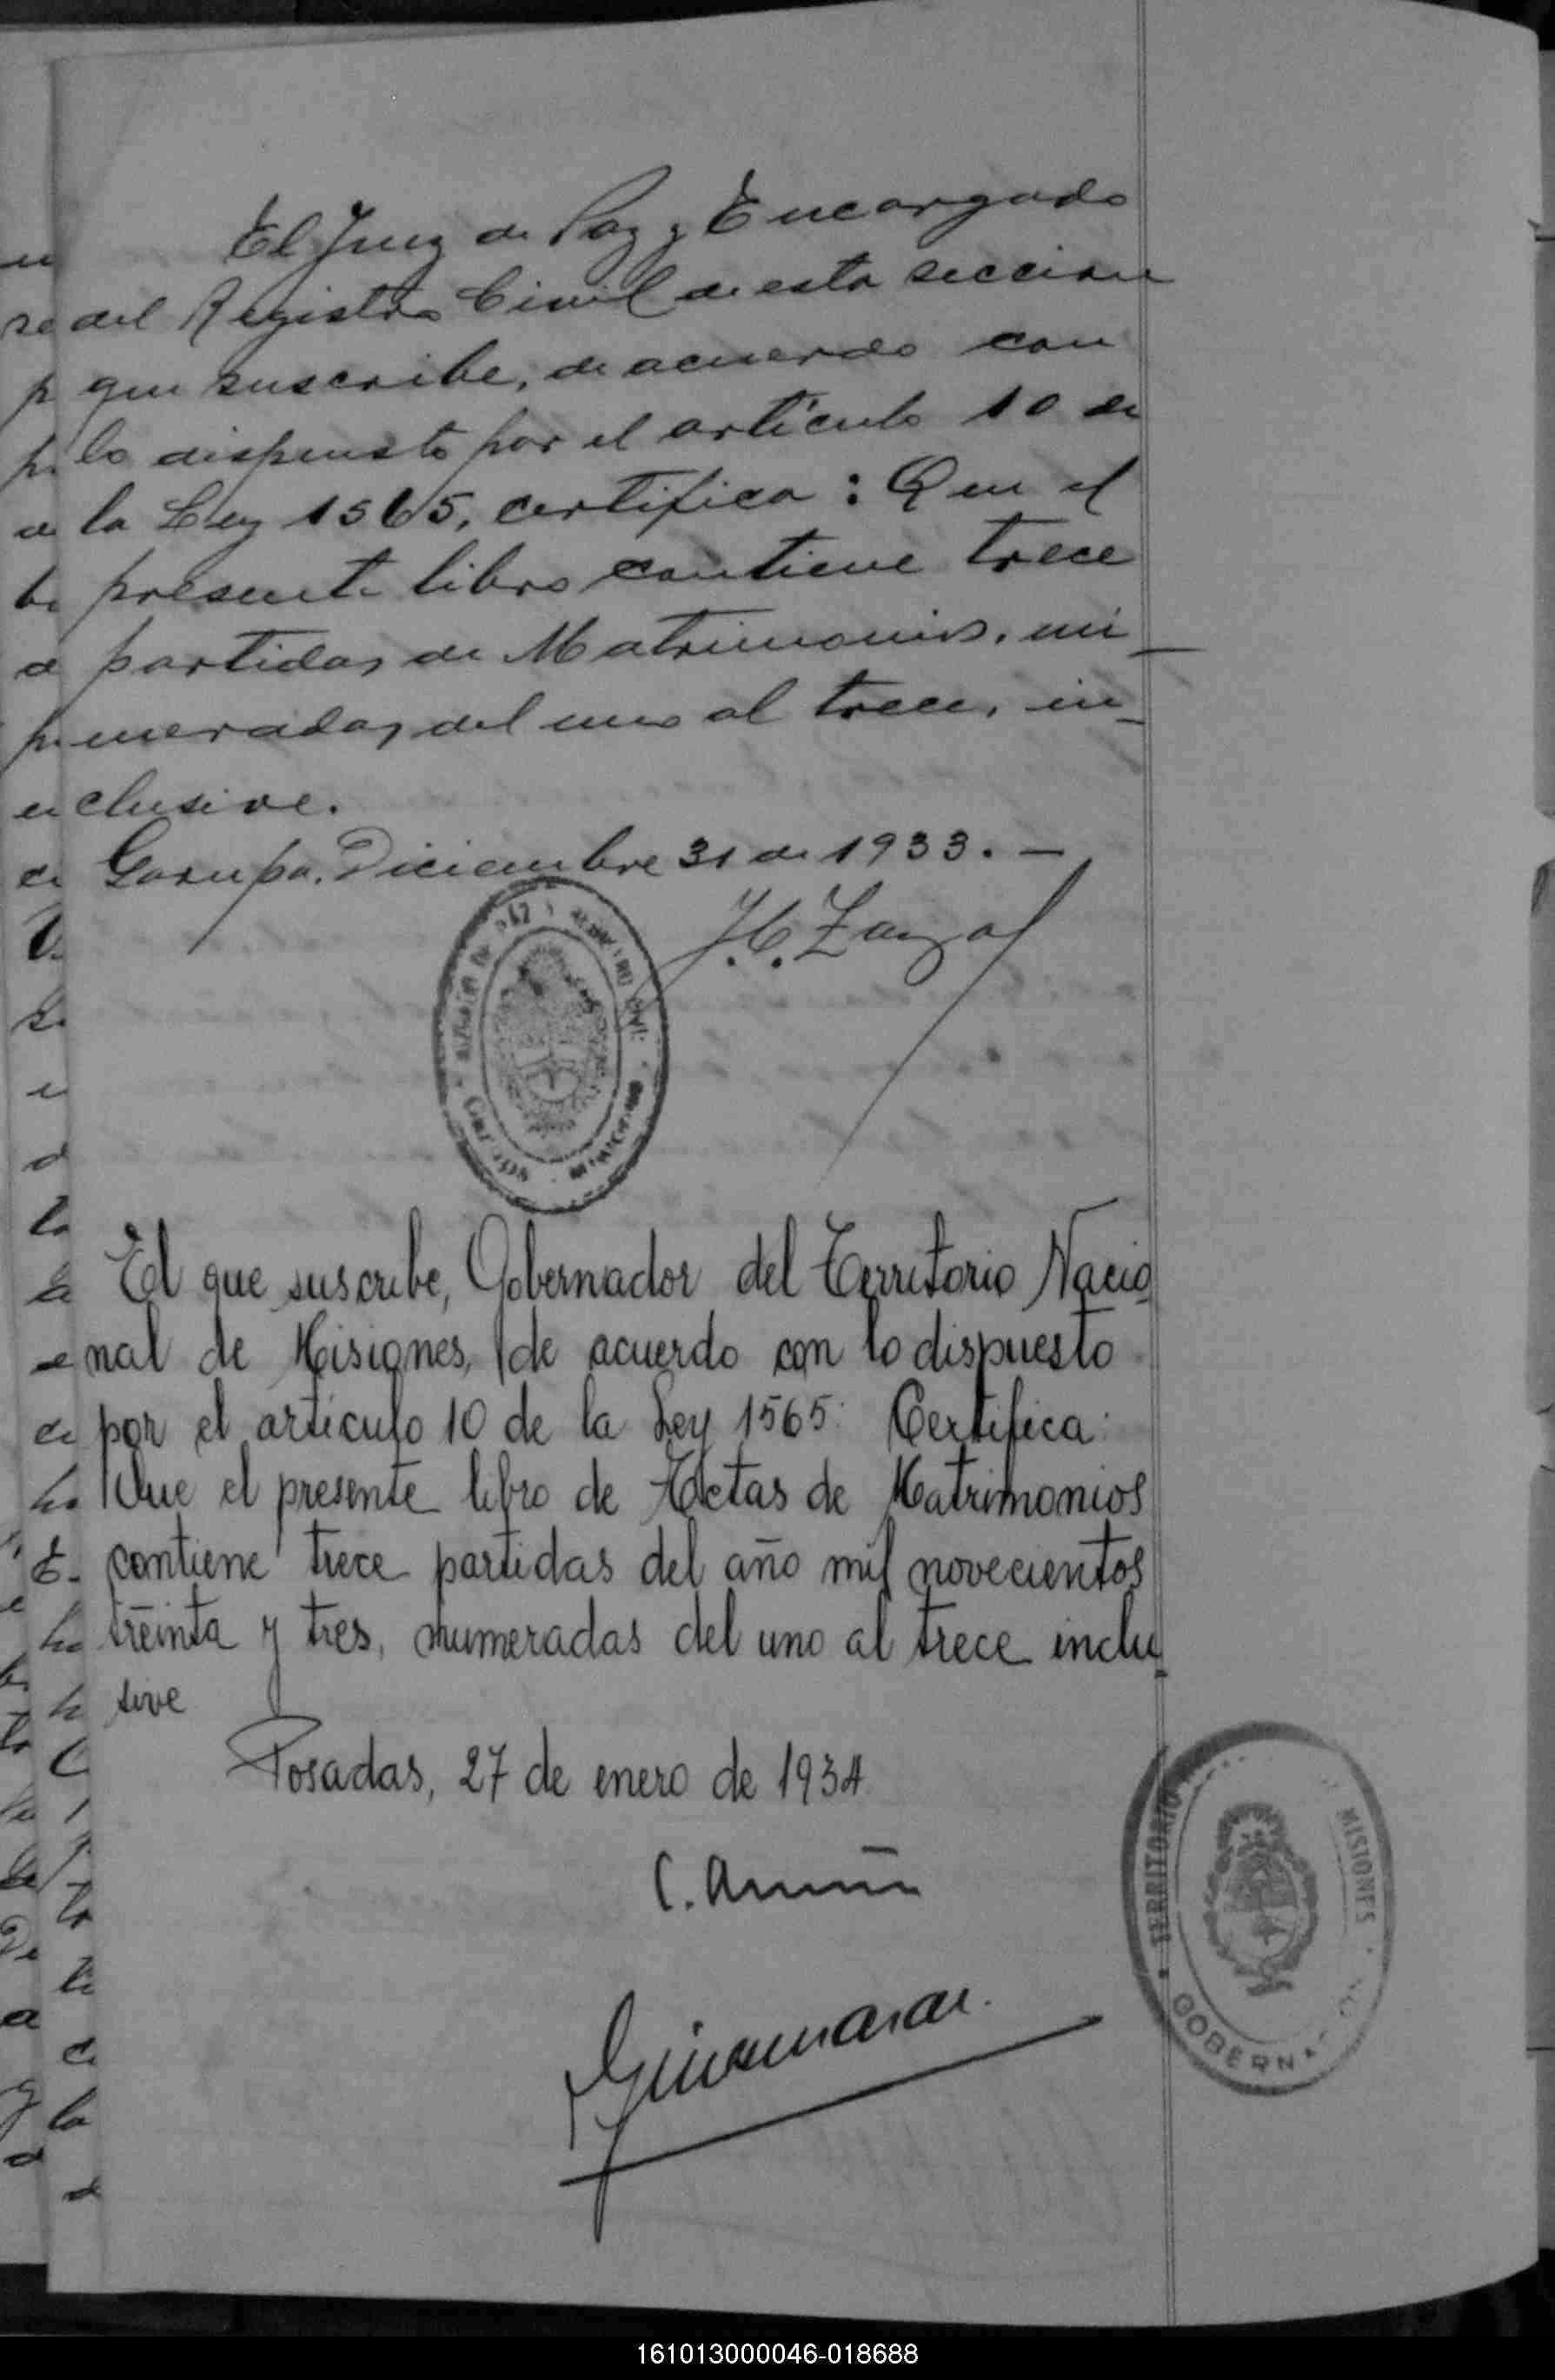 El Juez de Paz y Encargado
del Registro Civil de esta seccion
que suscribe, de acuerdo con
lo dispuesto por el artículo 10 de
la Ley 1565, certifica: Que el
presente libro contiene trece
partidas de Matrimonios, nu_
meradas del uno al trece, in_
clusive.
Garupa. Diciembre 31 de 1933. —
El que suscribe, Gobernador del Territorio Nacio_
nal de Misiones, de acuerdo con lo dispuesto
por el artículo 10 de la Ley 1565: Certifica:
Que el presente libro de Actas de Matrimonios
contiene trece partidas del año mil novecientos
treinta y tres, numeradas del uno al trece inclu_
sive
Posadas, 27 de enero de 1934
TERRITORIO
MISIONES
161013000046-018688